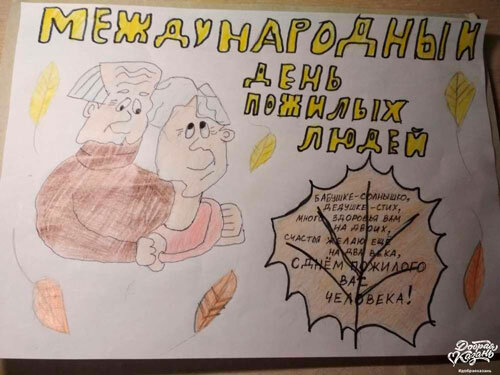 МЕЖДУНАРОДНЫЙ
ДЕНЬ
ПОЖИЛЫХ
ЛЮДЕЙ
БАБУШКЕ-СОЛНЫШКО,
ДЕДУШКЕ-СТИХ,
МНОГО ЗДОРОВЬЯ ВАМ
НА ДВОИХ,
СЧАСТЬЯ ЖЕЛАЮ ЕЩЁ
НА ДВА ВЕКА,
С ДНЁМ ПОЖИЛОГО
ВАС
ЧЕЛОВЕКА!
Добрая
Казань
#добраяказань